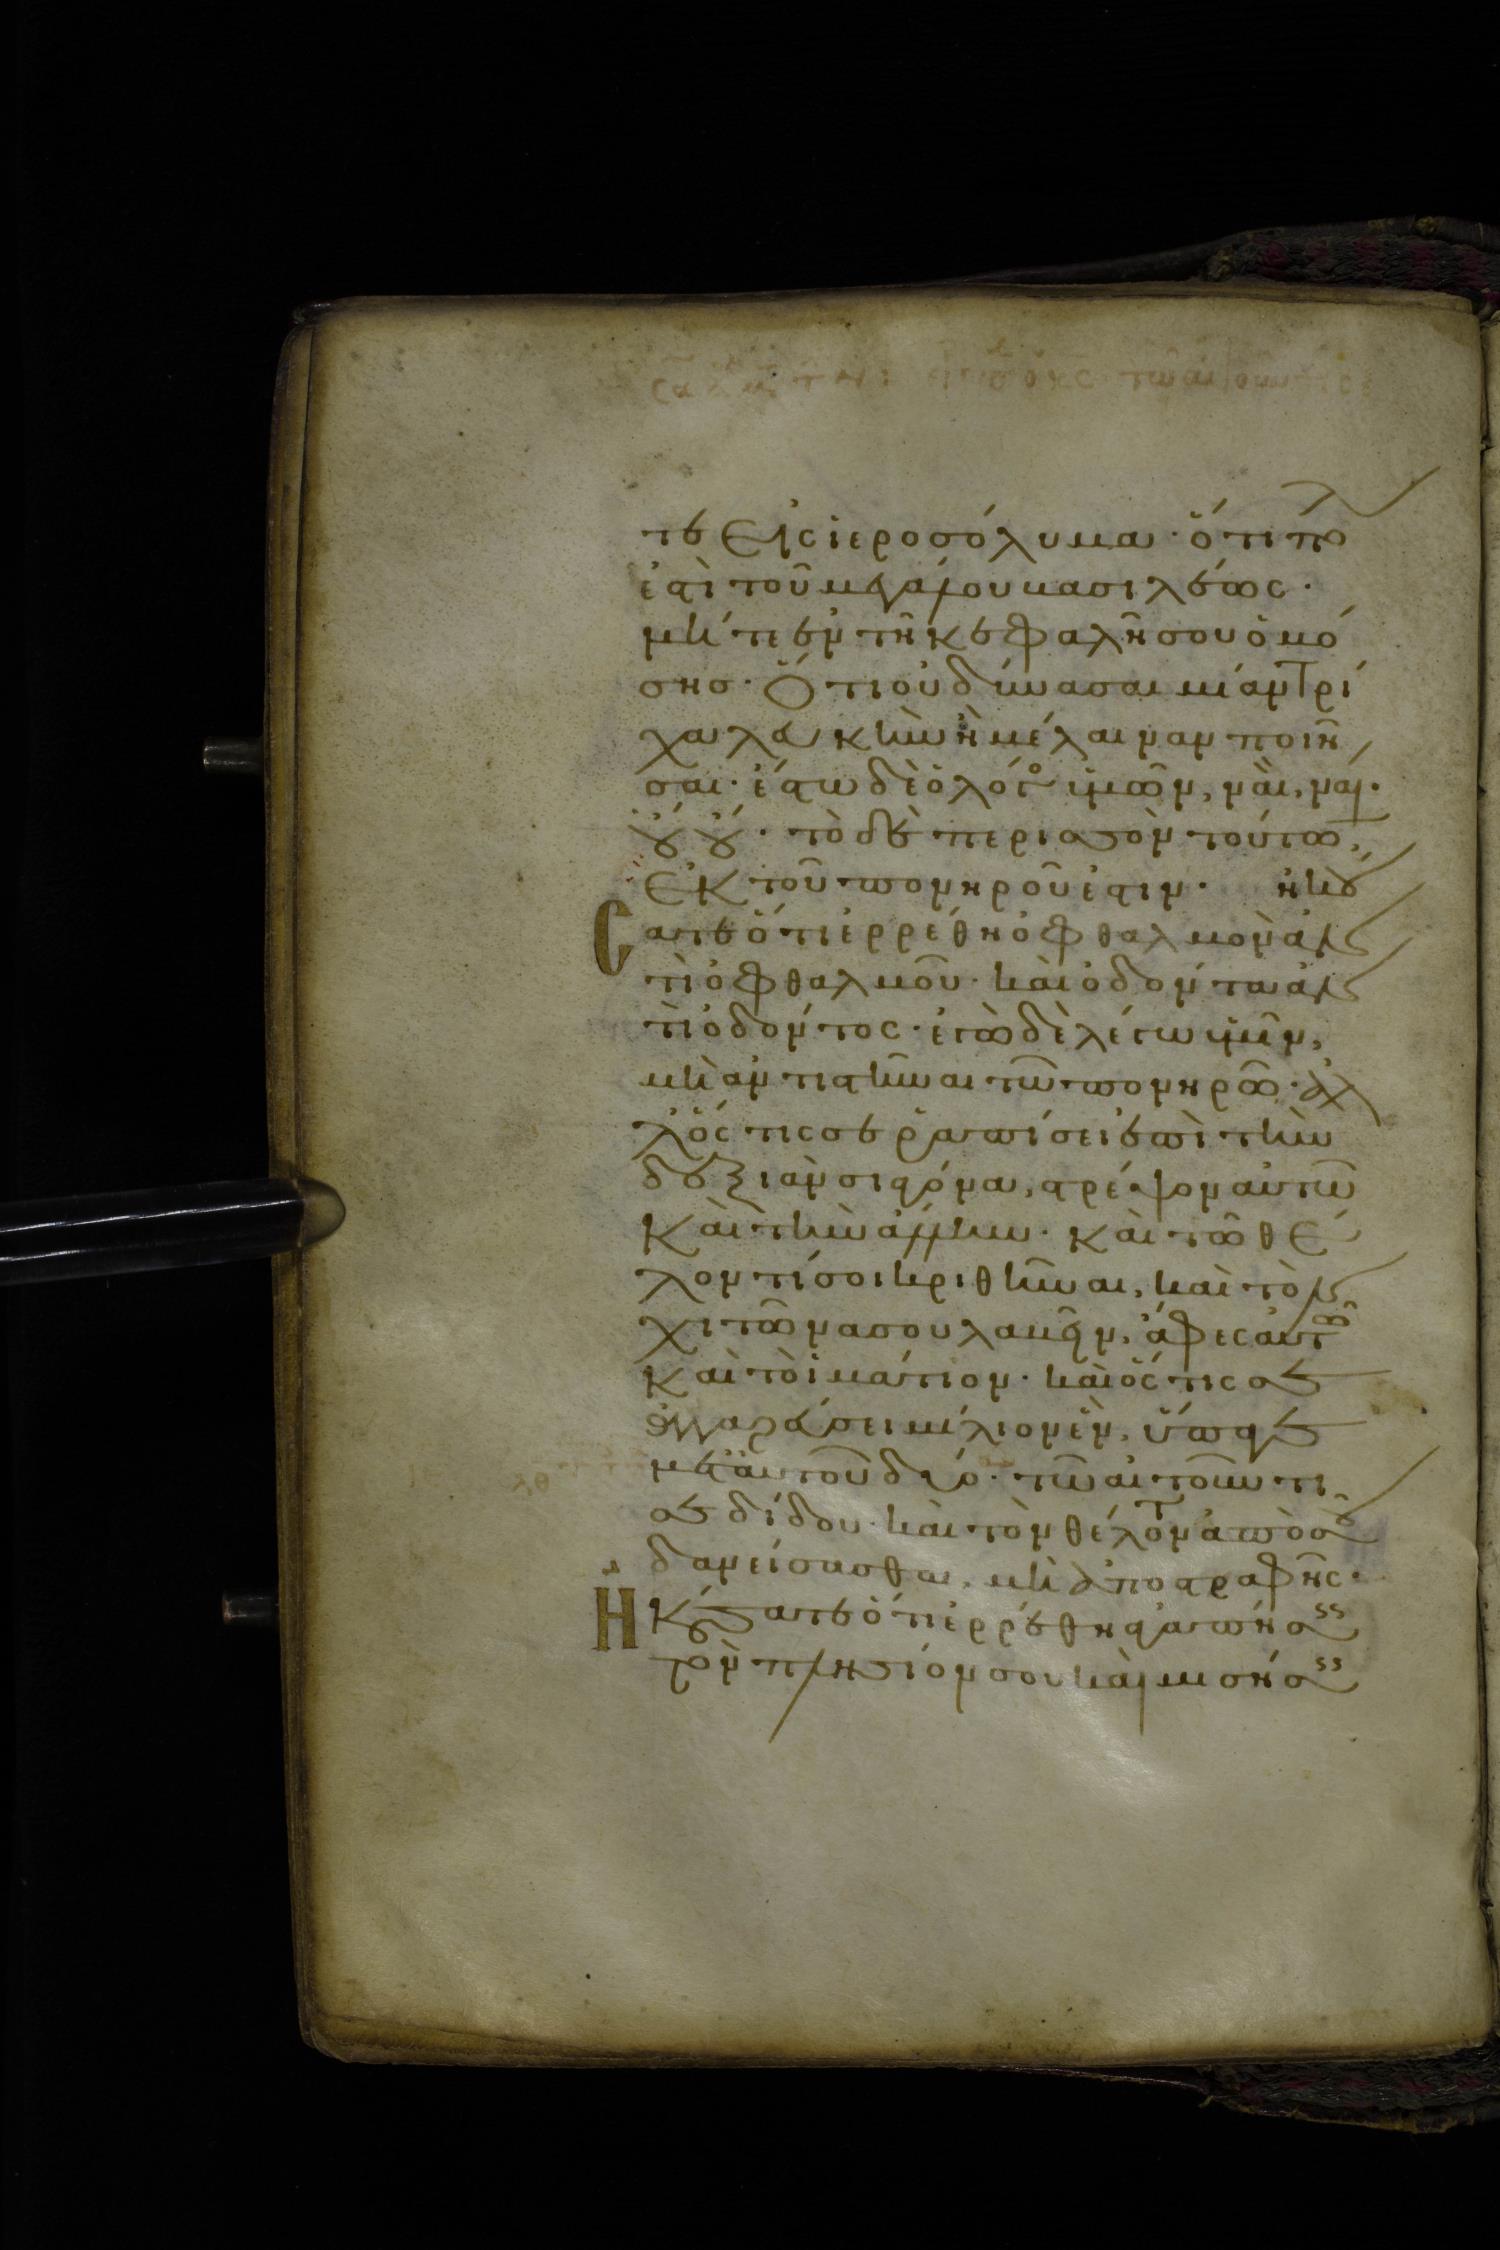 τε εἰς ἱεροσόλυμα· ὅτι πό
ἐστὶ τοῦ μεγάλου βασιλέως·
μήτε ἐν τῆ κεφαλῆ σου ὀμό
σησ· Ὅτι οὐ δύνασαι μίαν τρί
χα λευκὴν ἢ μέλαιναν ποιῆ
σαι· ἔστω δὲ ὁ λόγος ὑμῶν, ναὶ, ναί·
οὔ οὔ· τὸ δὲ περισσὸν τούτων,
ἐκ τοῦ πονηροῦ ἐστιν· ἠκού
σατε ὅτι ἐρρέθη ὀφθαλμὸν ἀν
τὶ ὀφθαλμοῦ· καὶ ὀδόντα ἀν
τὶ ὀδόντος· ἐγὼ δὲ λέγω ὑμῖν,
μὴ ἀντιστῆναι τῶ πονηρῶ· ἀλ
λ' ὅς τις σε ῥαπίσει ἐπὶ τὴν
δεξιὰν σιαγόνα, στρέψον αὐτῶ
καὶ τὴν ἄλλην· καὶ τῶ θέ
λοντί σοι κριθῆναι, καὶ τὸν
χιτῶνα σου λαβεῖν, ἄφες αὐτῶ
καὶ τὸ ἱμάτιον· καὶ ὅς τις σε
ἀγγαρεύσει μίλιον ἓν, ὕπαγε
μετ' αὐτοῦ δύο· τῶ αἰτοῦντι
σε δίδου· καὶ τὸν θέλοντα ἀπὸ σοῦ
δανείσασθαι, μὴ ἀποστραφῆς·
Ἠκούσατε ὅτι ἐρρέθη ἀγαπήσεις
τὸν πλησίον σου καὶ μισήσεις